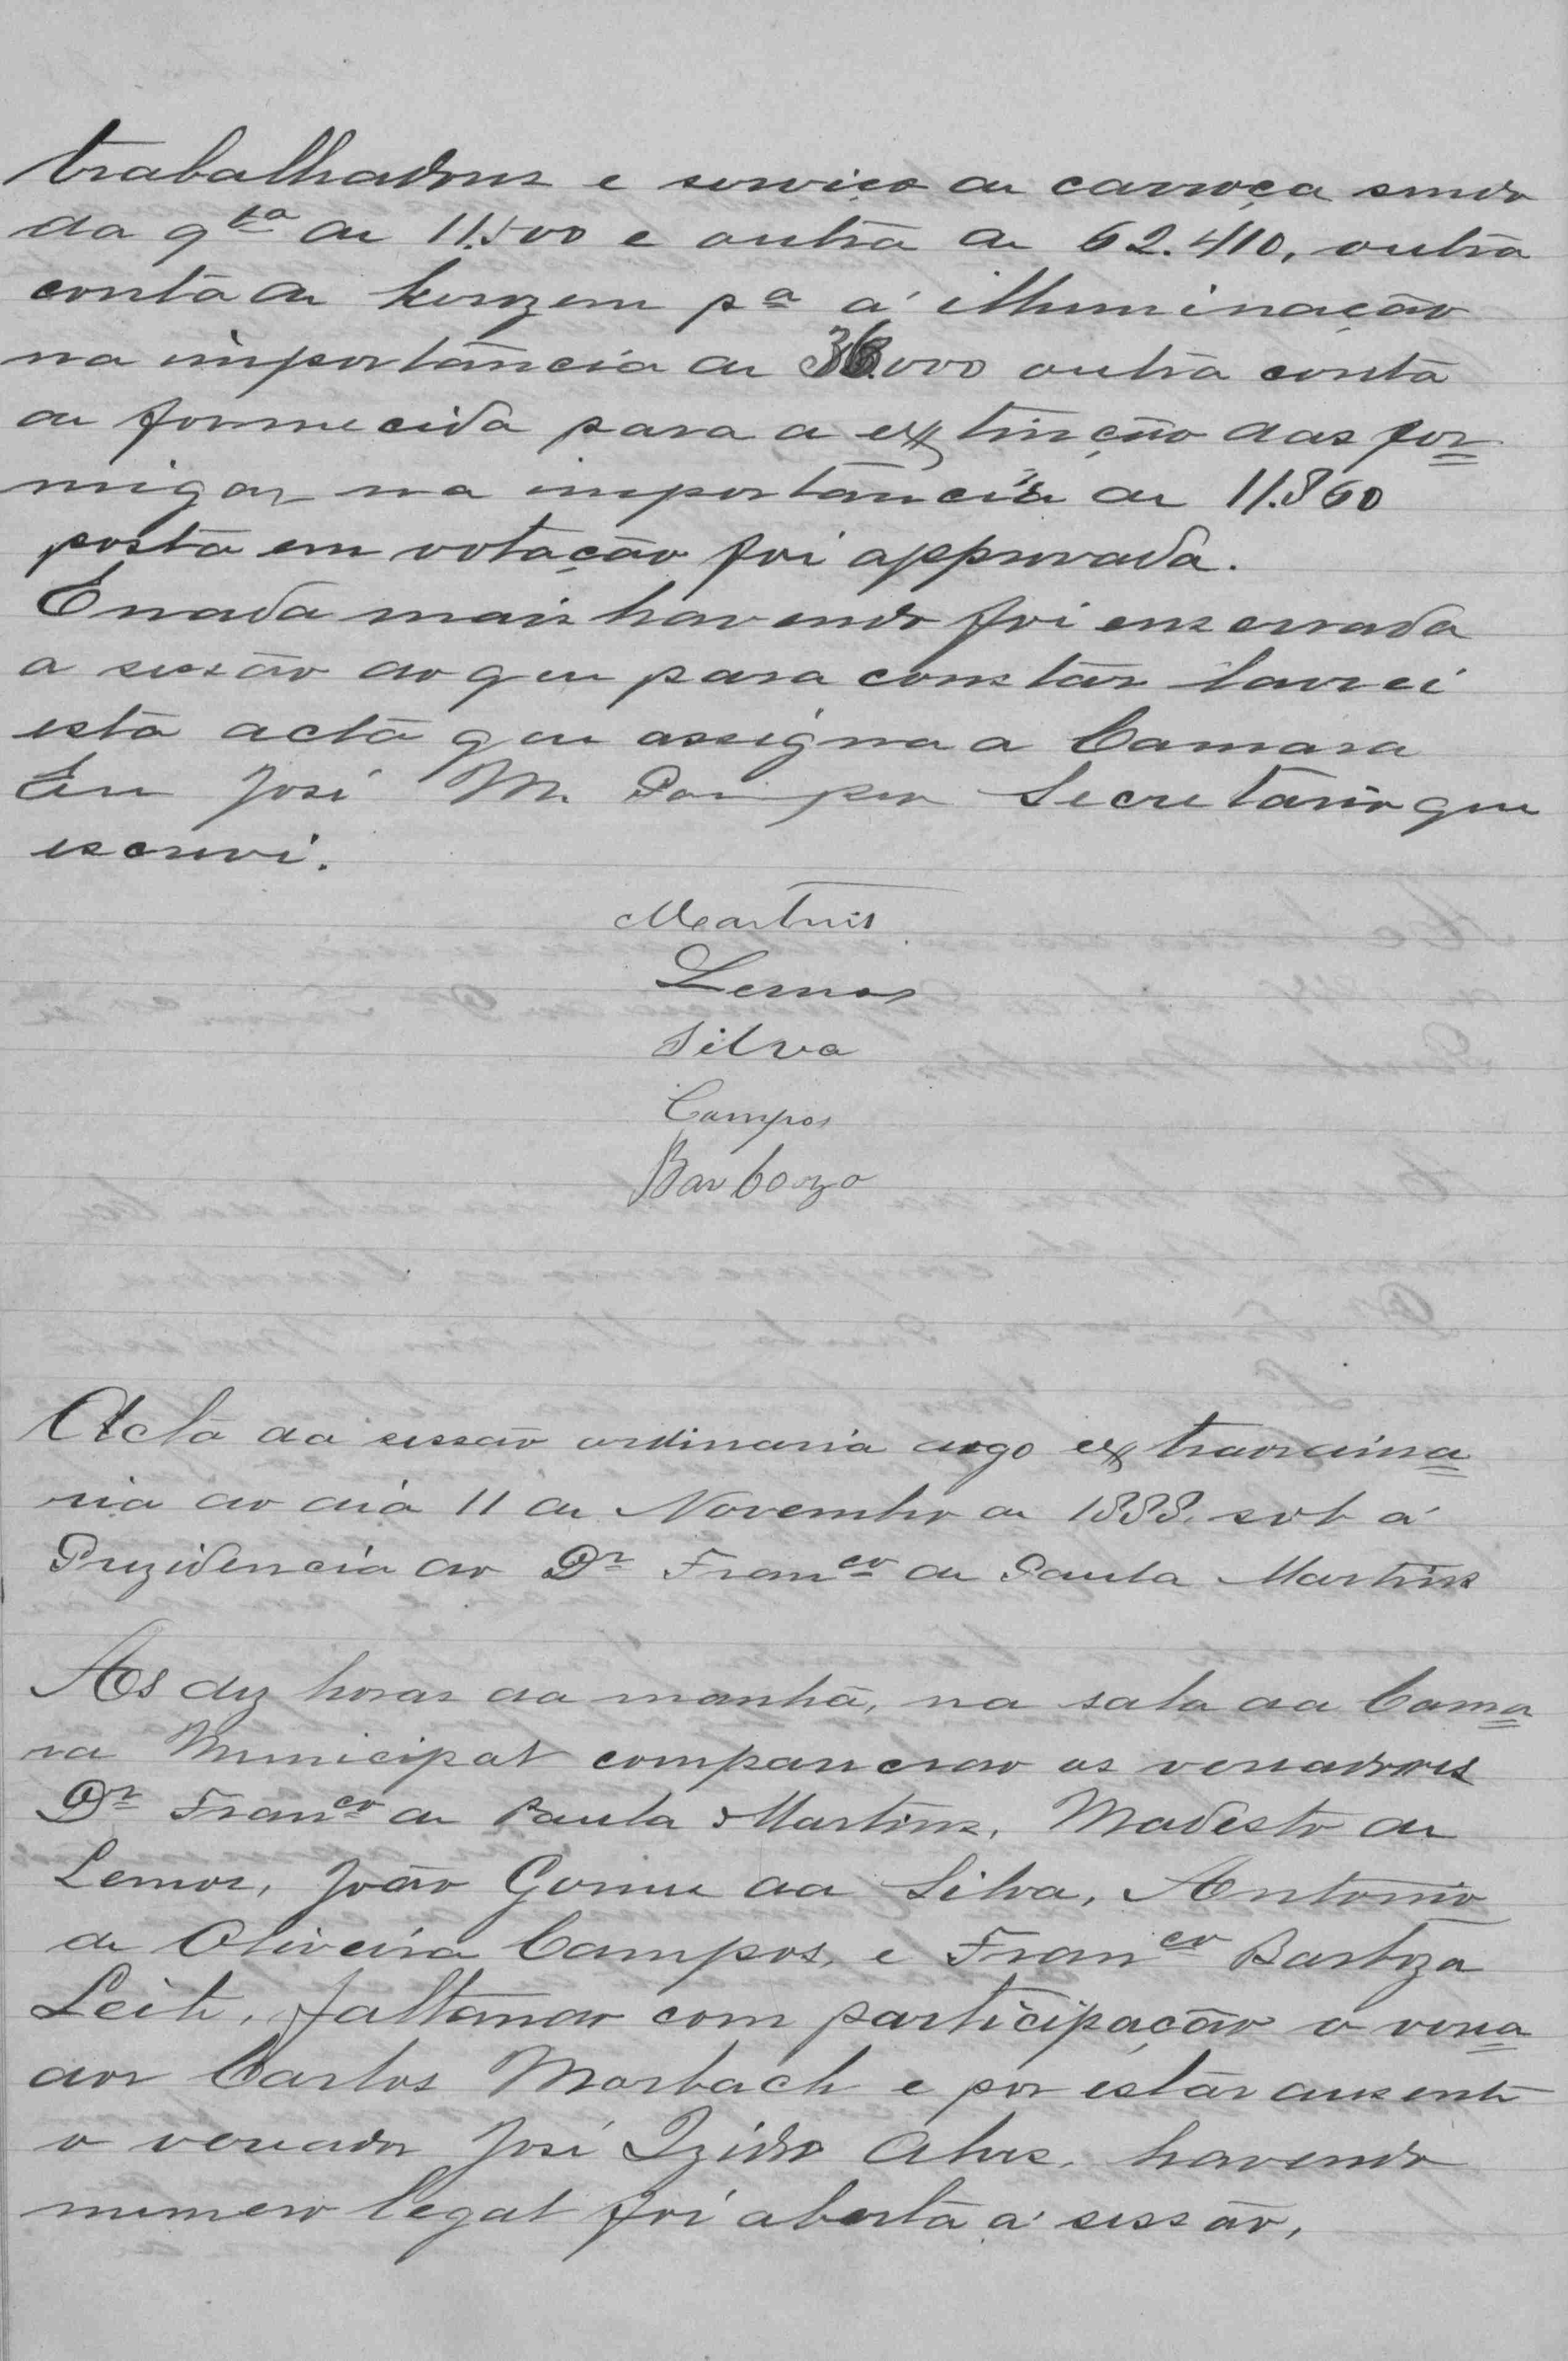 trabalhadores e serviço de carroça sendo
da q.ta de 11.500 e outra de 62.410, outra
conta de kerozem pa á illuminação
na importancia de 36.000 outra conta
de formecida para a extinção das for=
migas na importancia de 11.860
posta em votação foi approvada.
E nada mais havendo foi enserrada
a sessão do que para constar lavrei
esta acta que assigna a Camara
Eu José M. Pompeu Secretario que
escrevi.
Martins
Lemos
Silva
Campos
Barboza
Acta da sessão ordinaria digo extraordina=
ria do dia 11 de Novembro de 1888. sob á
Prezidencia do Dr Franco de Paula Martins
As dez horas da manhã, na sala da Cama=
ra Municipal comparecerão os vereadores
Dr Franco de Paula Martins, Modesto de
Lemos, João Gomes da Silva, Antonio
de Oliveira Campos, e Franco Barboza
Leite, faltando com participação o verea=
dor Carlos Morbach e por estar ausente
o vereador José Izidro Alves, havendo
numero legal foi aberta á sessão,